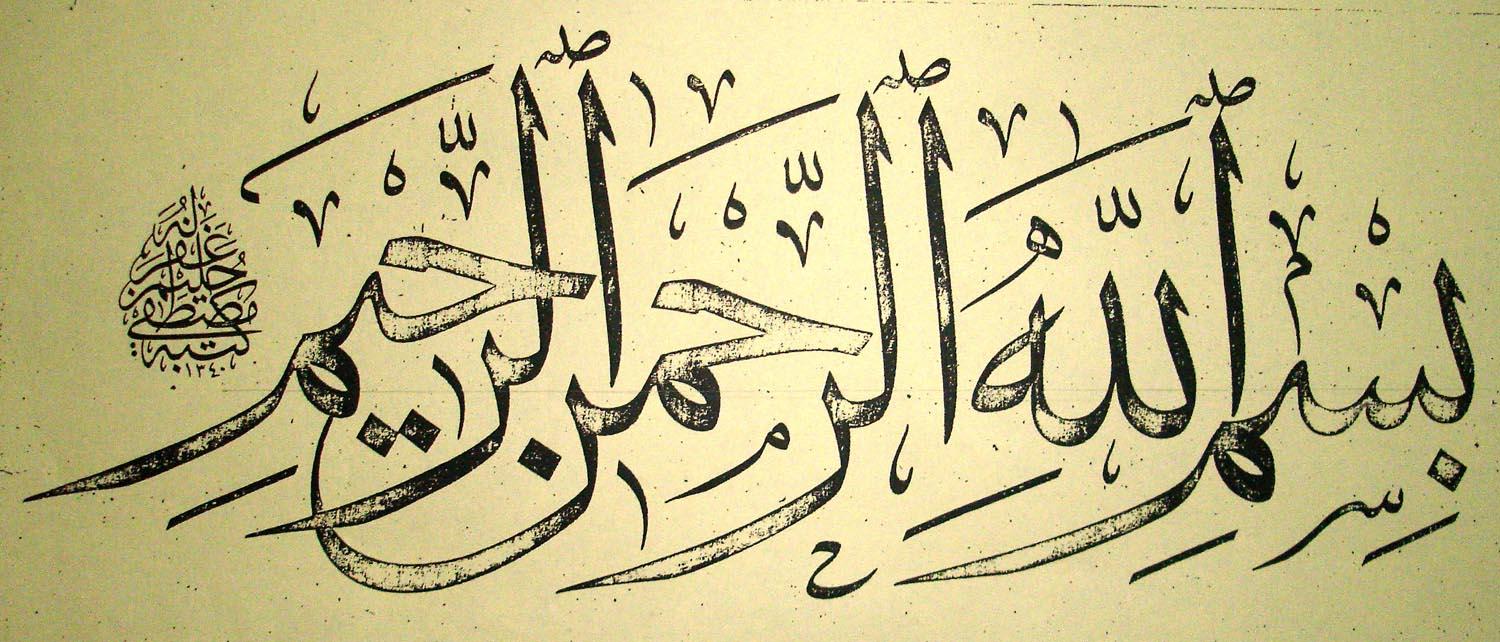 بِسْمِ اللهِ الرَّحْمٰنِ الرَّحِيمِ
كتبه مصطفى حليم غفر له
١٣٤٠